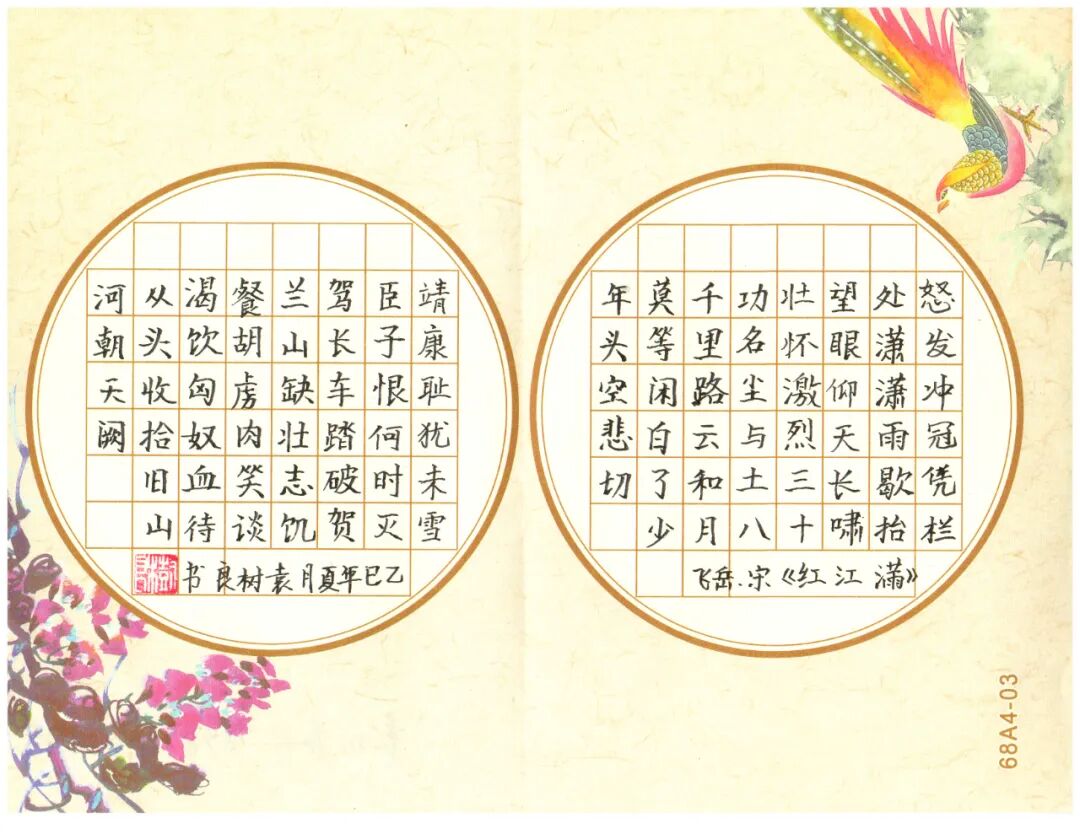 怒发冲冠凭栏
处潇潇雨歇抬
望眼仰天长啸
壮怀激烈三十
功名尘与土八
千里路云和月
莫等闲白了少
年头空悲切
《满江红》宋.岳飞
靖康耻犹未雪
臣子恨何时灭
驾长车踏破贺
兰山缺壮志饥
餐胡虏肉笑谈
渴饮匈奴血待
从头收拾旧山
河朝天阙
乙巳年夏月袁树良书
68A4-03